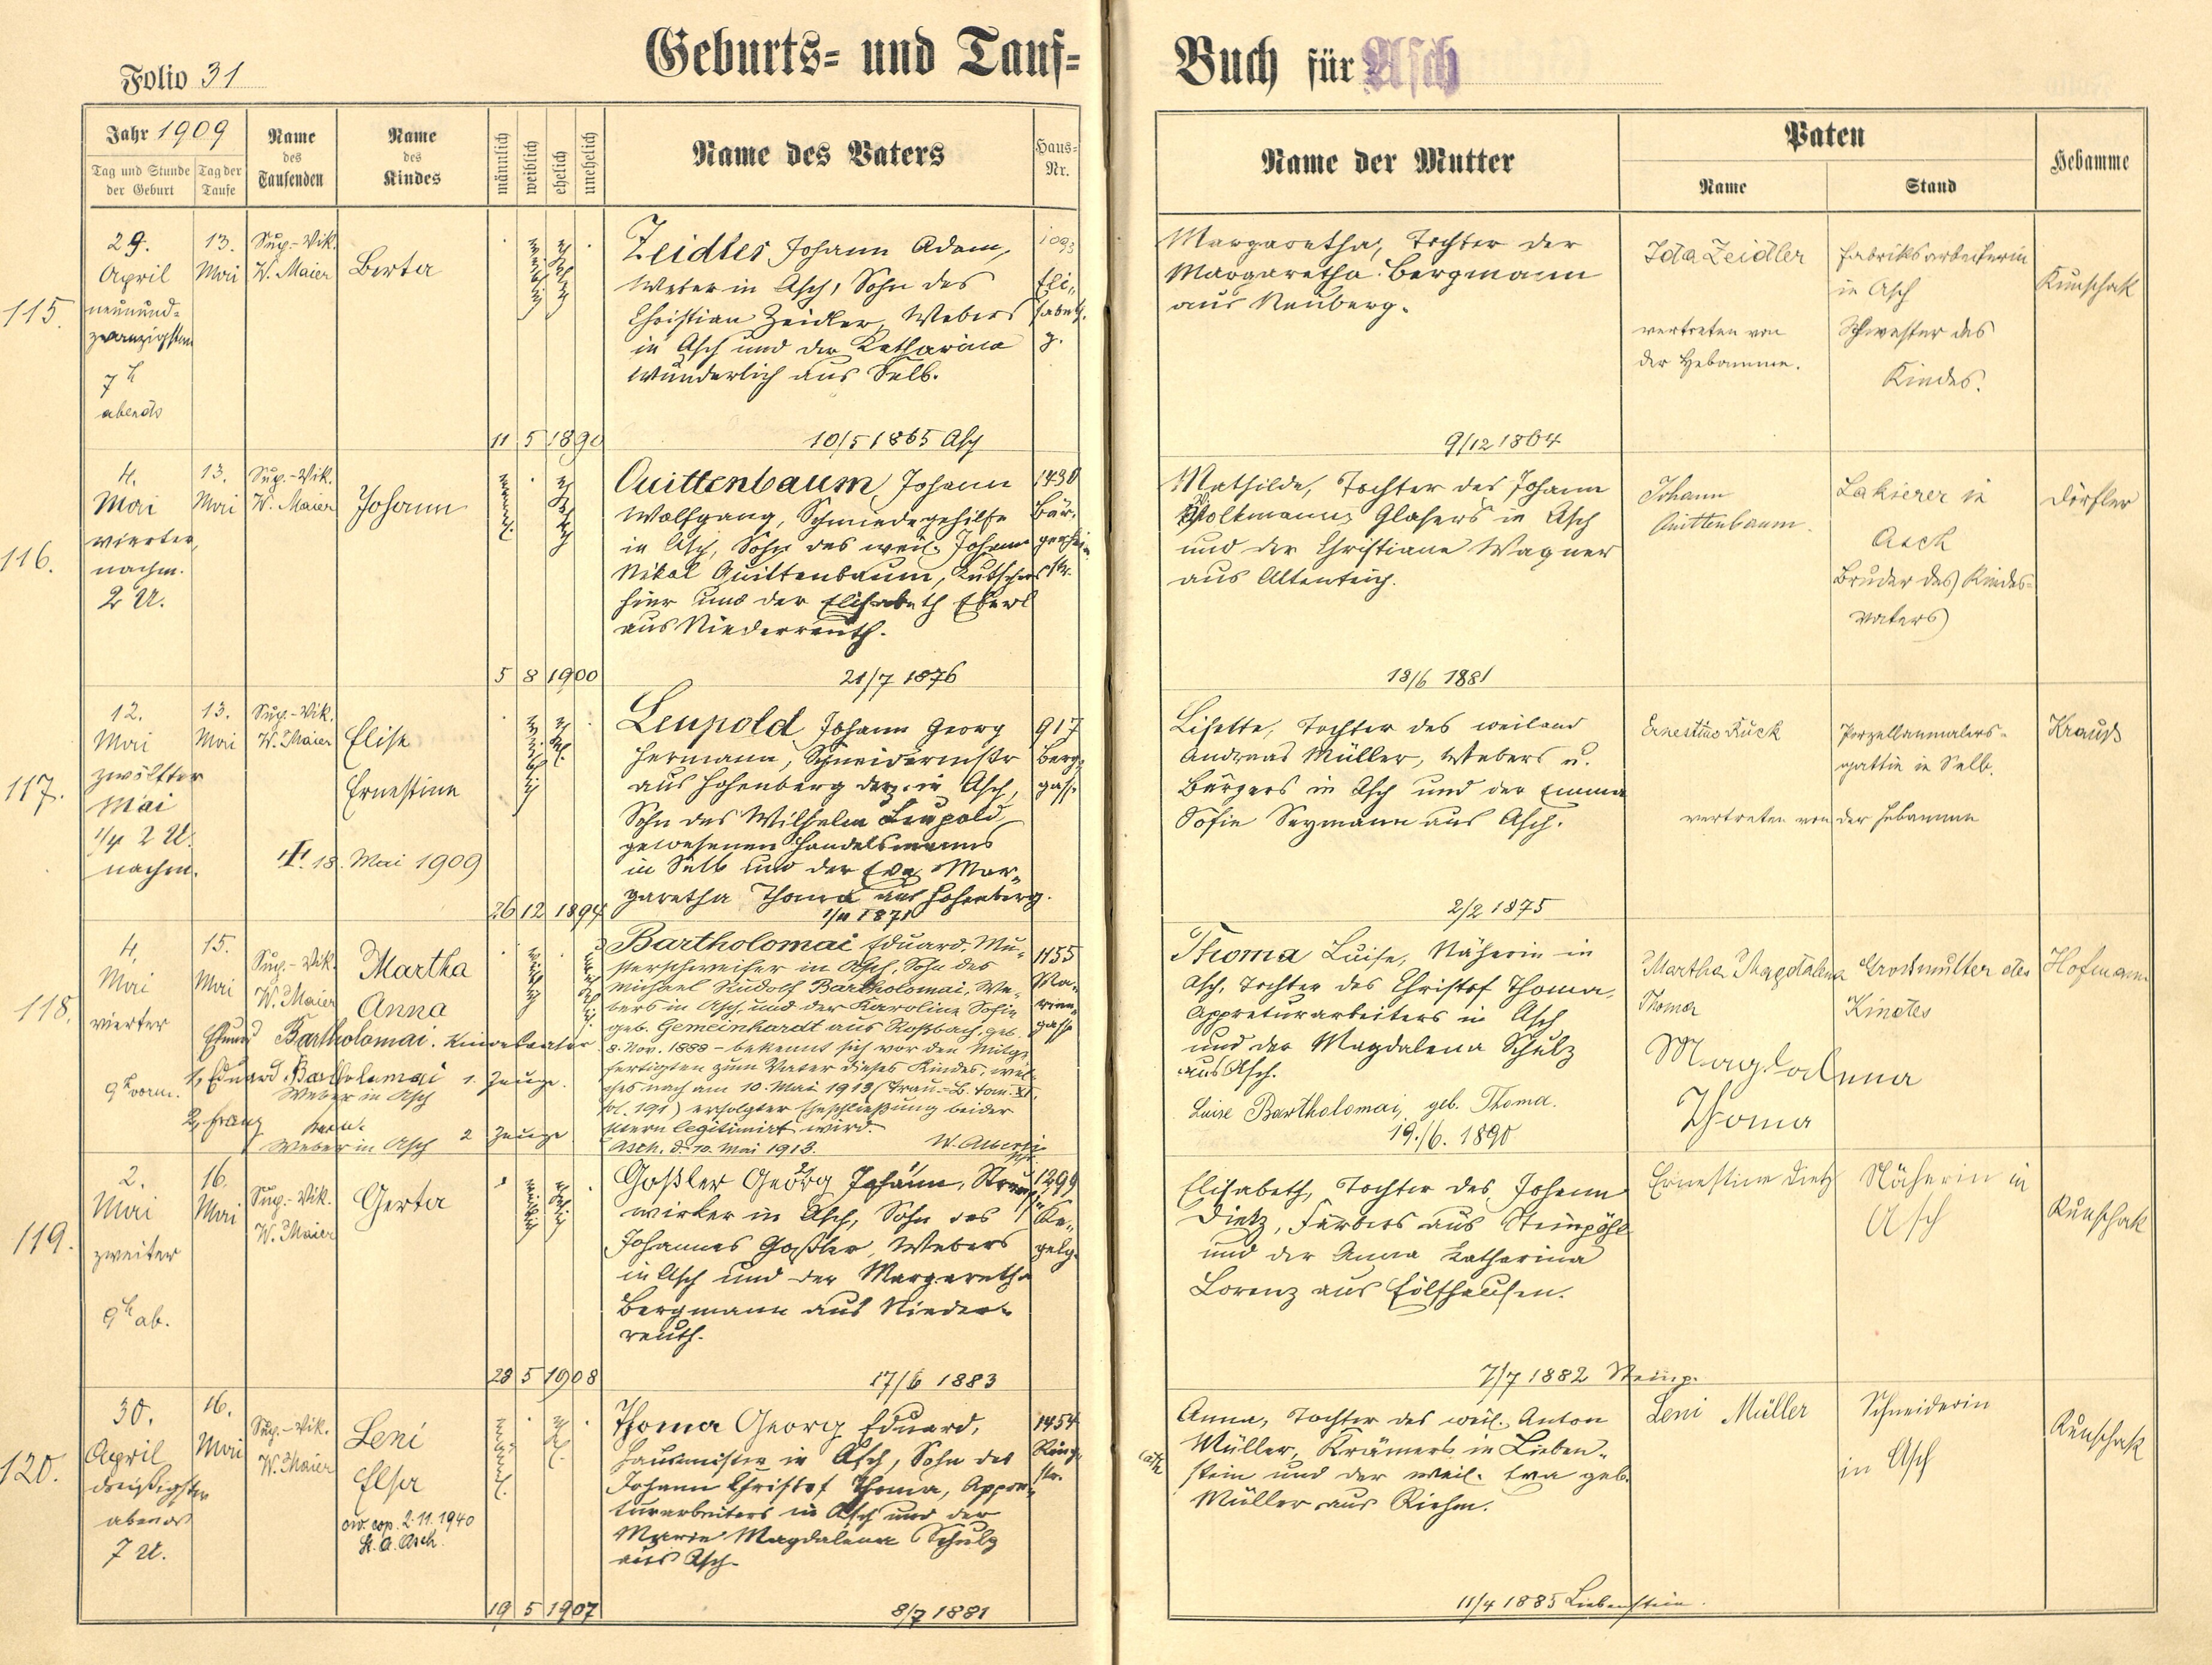 Folio 31
Geburts- und Tauf-
Buch für Asch
Jahr 1909
Tag und Stunde der Geburt
Tag der Taufe
Name des Taufenden
Name des Kindes
männlich
weiblich
ehelich
unehelich
Name des Vaters
Haus-Nr.
Name der Mutter
Paten
Name
Stand
Hebamme
115.
29.
April
neunund-
zwanzigsten
7 h
abends
13.
Mai
Sup.-Vik.
W. Maier
Berta
weiblich
ehelich
11 5 1890
Zeidler Johann Adam,
Weber in Asch, Sohn des
Christian Zeidler, Webers
in Asch und der Katharina
Wunderlich aus Selb.
10/5 1865 Asch
1093
Eli-
sabeth-
g.
Margaretha, Tochter der
Margaretha Bergmann
aus Neuberg.
9/12 1864
Ida Zeidler
vertreten von
der Hebamme.
Fabriksarbeiterin
in Asch
Schwester des
Kindes.
Künschak
116.
4.
Mai
vierter,
nachm.
2 U.
13.
Mai
Sup.-Vik.
W. Maier
Johann
männl.
ehelich
5 8 1900
Quittenbaum, Johann
Wolfgang, Schmiedegehilfe
in Asch, Sohn des weil. Johann
Nikol Quittenbaum, Kutschers
hier und der Elisabeth Eberl
aus Niederreuth.
21/7 1876
1430
Bür-
gerhei-
str.
Mathilde, Tochter des Johann
Volkmann, Glasers in Asch
und der Christiane Wagner
aus Altenteich.
18/6 1881
Johann
Quittenbaum.
Lakierer in
Asch
Bruder des Kindes-
vaters)
Dörfler
117.
12.
Mai
zwölfter
Mai
1/4 2 U.
nachm.
13.
Mai
Sup.-Vik.
W. Maier
Elise
Ernestine
18. Mai 1909
weiblich
ehel.
26 12 1894
Leupold Johann Georg
Hermann, Schneidermstr
aus Hohenberg derz. in Asch,
Sohn des Wilhelm Leupold,
gewesenen Handelsmanns
in Selb und der Eva Mar-
garetha Thoma aus Hohenberg.
1/11 1871
917
Berg-
gasse
Lisette, Tochter des weiland
Andreas Müller, Webers u.
Bürgers in Asch und der Emma
Sofie Seymann aus Asch.
2/2 1875
Ernestine Kück
Porzellanmalers-
gattin in Selb.
vertreten von der Hebamme
Krauß
118.
4.
Mai
vierter
9 h vorm.
15.
Mai
Sup.-Vik.
W. Maier
Martha
Anna
Eduard Bartholomai. Kindesvater
1, Eduard Bartholomai 1. Zeuge.
Weber in Asch
2, Franz
Weber in Asch 2 Zeuge
weiblich
unehelich
Bartholomai Eduard, Mu-
sterschweifer in Asch, Sohn des
Michael Rudolf Bartholomai, We-
bers in Asch, und der Karoline Sofie
geb. Gemeinhardt aus Roßbach, geb.
8. Nov. 1888 - bekennt sich vor den Mitge-
fertigten zum Vater dieses Kindes, wel-
ches nach am 10. Mai 1913 (Trau.-B. tom. XI.
fol. 191) erfolgter Eheschließung beider
Eltern legitimirt wird.
Asch, d. 10. Mai 1913.
W. Alberti
1155
Ma-
rien-
gasse
Thoma Luise, Näherin in
Asch, Tochter des Christof Thoma,
Appreturarbeiters in Asch
und der Magdalena Schulz
aus Asch.
Luise Bartholomai, geb. Thoma.
19./6. 1890
Martha Magdalena
Thoma
Magdalena
Thoma
Grossmutter des
Kindes
Hofmann
119.
2.
Mai
zweiter
9 h ab.
16.
Mai
Sup.-Vik.
W. Maier
Gerta
weiblich
ehelich
23 5 1908
Goßler Georg Johann, Strumpf-
wirker in Asch, Sohn des
Johannes Goßler, Webers
in Asch und der Margaretha
Bergmann aus Nieder-
reuth.
17/6 1883
1299
Ke-
gelg.
Elisabeth, Tochter des Johann
Dietz, Färbers aus Steinpöhl
und der Anna Katharina
Lorenz aus Eulshausen.
7/7 1882 Steinp.
Ernestine Dietz
Näherin in
Asch
Künschak
120.
30.
April
dreißigster
abends
7 U.
16.
Mai
Sup.-Vik.
W. Maier
Leni
Elsa
civ. cop. 2.11.1940
St. A. Asch.
ehel.
19 5 1907
Thoma Georg Eduard,
Hausmeister in Asch, Sohn des
Johann Christof Thoma, Appre-
turarbeiters in Asch und der
Marie Magdalena Schulz
aus Asch.
8/7 1881
1454
Ring-
str.
cath.
Anna, Tochter des weil. Anton
Müller, Krämers in Lieben-
stein und der weil. Eva geb.
Müller aus Riehm.
11/4 1885 Liebenstein.
Leni Müller
Schneiderin
in Asch
Künschak